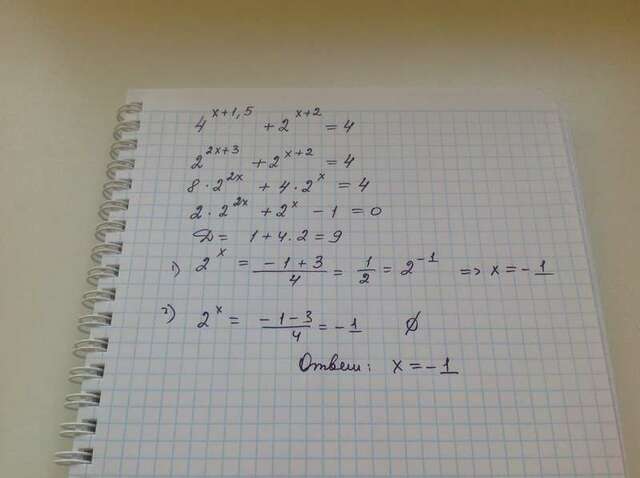 4^{x+1,5} + 2^{x+2} = 4
2^{2x+3} + 2^{x+2} = 4
8 · 2^{2x} + 4 · 2^x = 4
2 · 2^{2x} + 2^x − 1 = 0
Д = 1 + 4 · 2 = 9
1) 2^x = \frac{−1+3}{4} = \frac{1}{2} = 2^{−1} => x = −1
2) 2^x = \frac{−1−3}{4} = −1 ∅
Ответ: x = −1